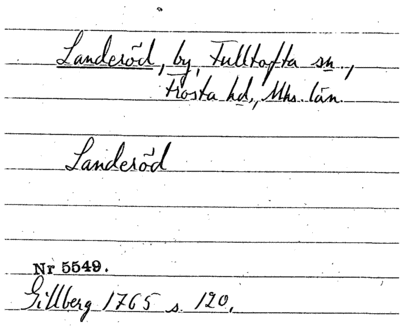 Landeröd, by, Fulltofta sn.,
Frosta hd., Mhs. län.
Landeröd
Nr 5549.
Gillberg 1765 s. 120.